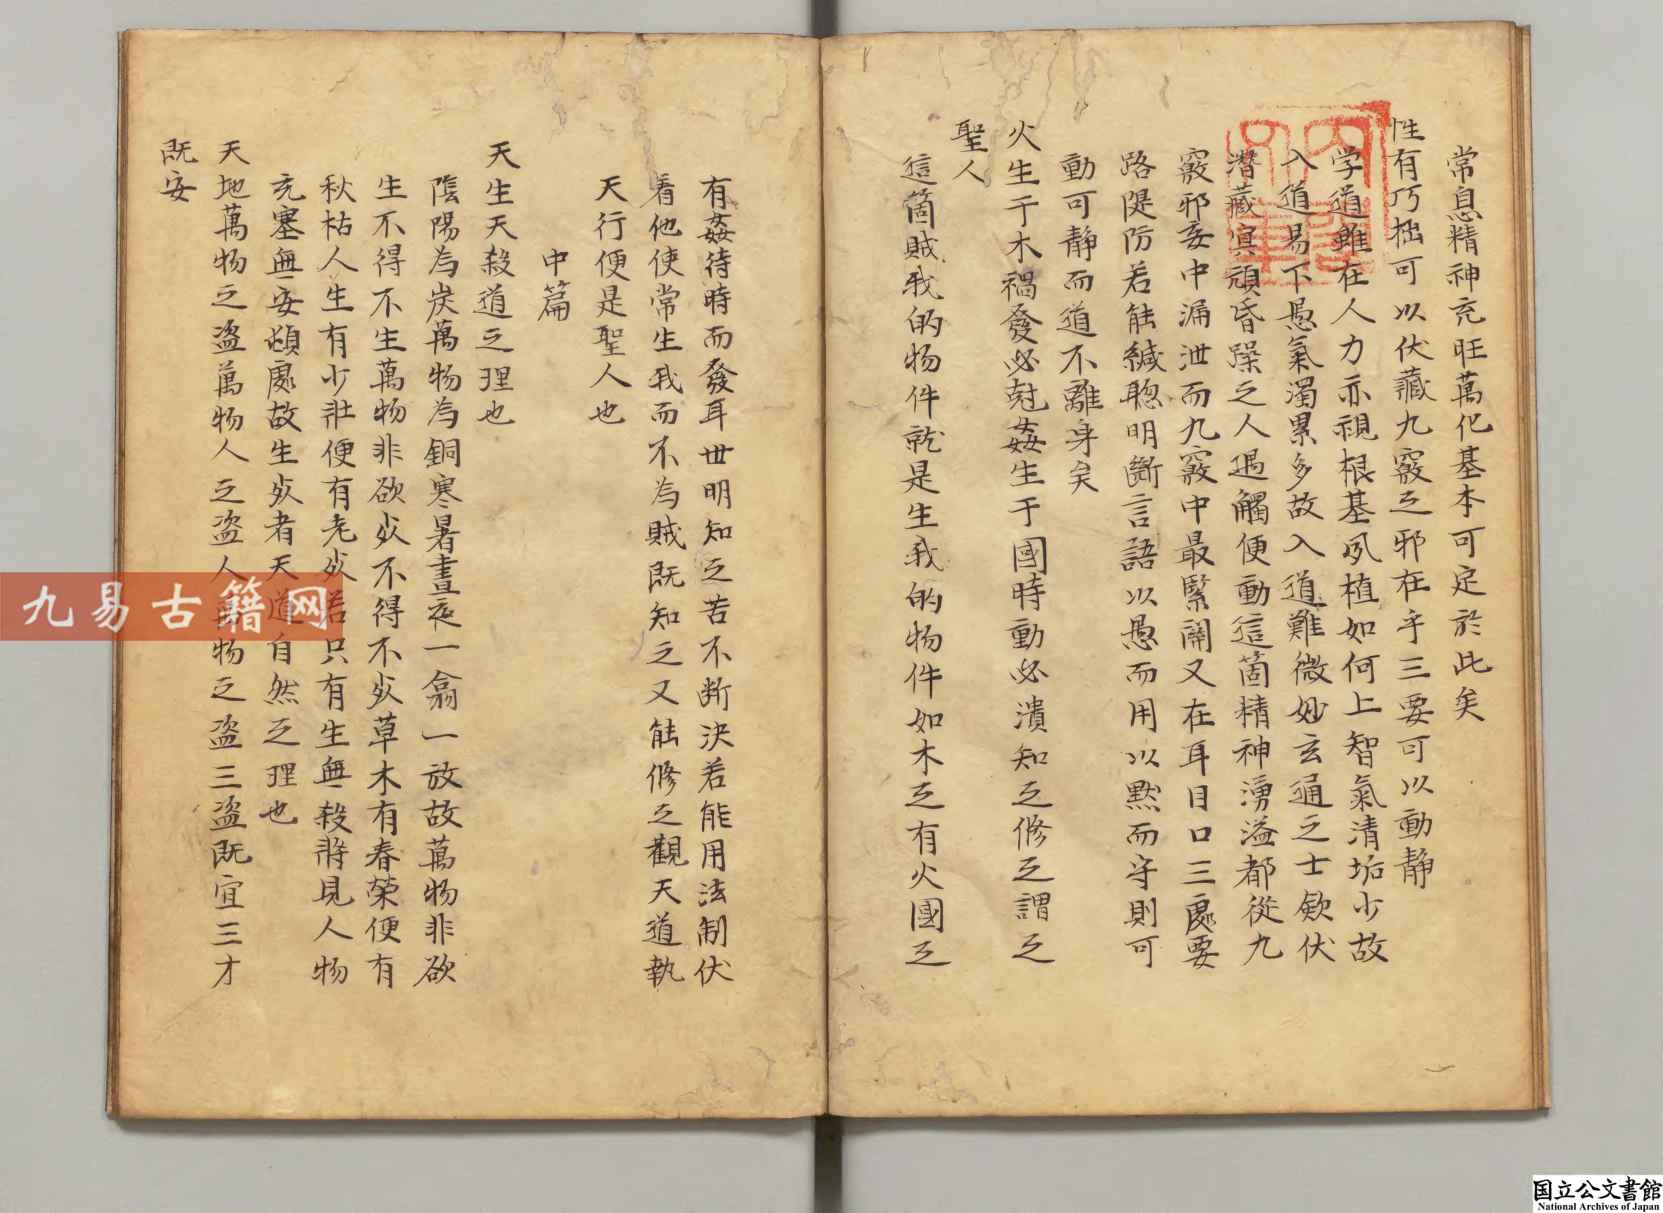 常息精神充旺萬化基本可定於此矣
性有巧拙可以伏藏九竅之邪在乎三要可以動靜
学道雖在人力亦視根基夙植如何上智氣清垢少故
入道易下愚氣濁累多故入道難微妙玄通之士欽伏
潜藏冥頑昏躁之人遇觸便動這箇精神湧溢都從九
竅邪妄中漏泄而九竅中最緊關又在耳目口三處要
路隄防若能緘聰明斷言語以愚而用以默而守則可
動可静而道不離身矣
火生于木禍發必尅姦生于國時動必潰知之修之謂之
聖人
這箇賊我的物件就是生我的物件如木之有火國之
有姦待時而發耳世明知之若不断決若能用法制伏
看他使常生我而不為賊既知之又能修之觀天道執
天行便是聖人也
中篇
天生天殺道之理也
陰陽為炭萬物為銅寒暑晝夜一翕一放故萬物非欲
生不得不生萬物非欲死不得不死草木有春榮便有
秋枯人生有少壯便有老死若只有生無殺將見人物
充塞無安頓處故生死者天道自然之理也
天地萬物之盗萬物人之盗人萬物之盗三盗既宜三才
既安
九易古籍网
国立公文書館
National Archives of Japan